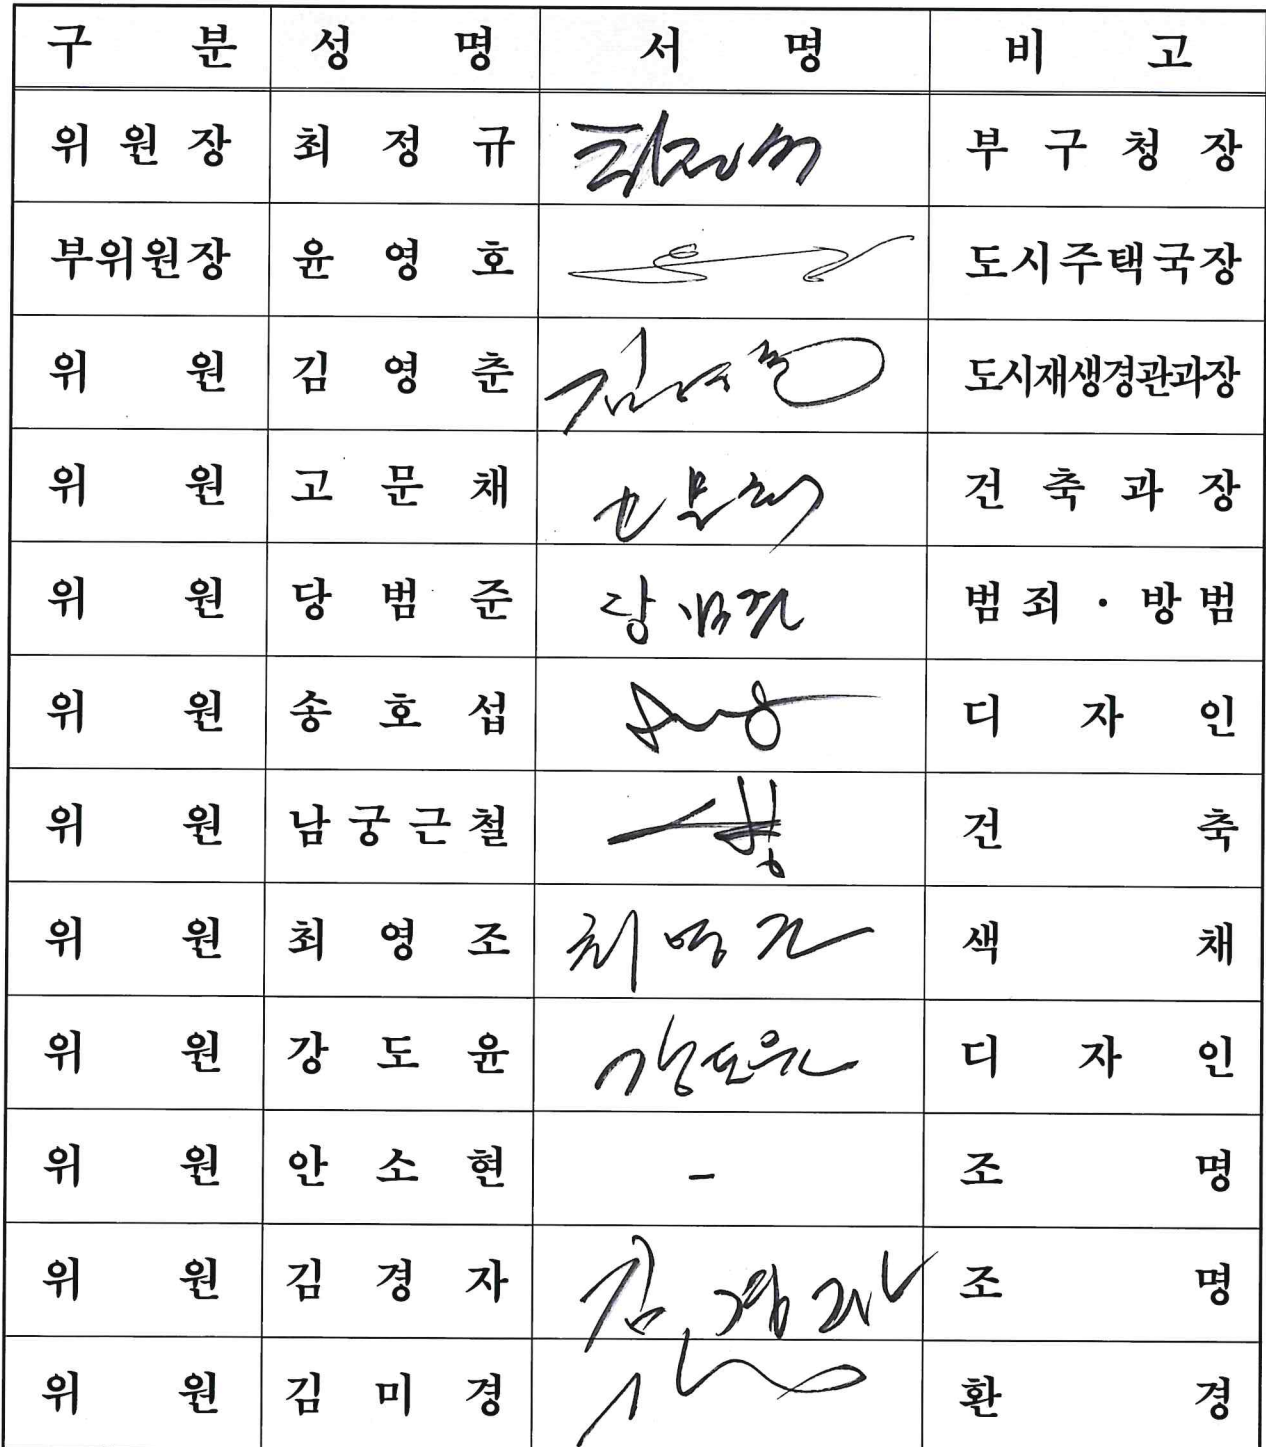 구 분 성 명 서 명 비 고
위 원 장 최 정 규 최정규 부 구 청 장
부위원장 윤 영 호 도시주택국장
위 원 김 영 춘 김영춘 도시재생경관과장
위 원 고 문 채 고문채 건 축 과 장
위 원 당 범 준 당범준 범 죄 · 방 범
위 원 송 호 섭 디 자 인
위 원 남 궁 근 철 건 축
위 원 최 영 조 최영조 색 채
위 원 강 도 윤 강도윤 디 자 인
위 원 안 소 현 - 조 명
위 원 김 경 자 김경자 조 명
위 원 김 미 경 환 경